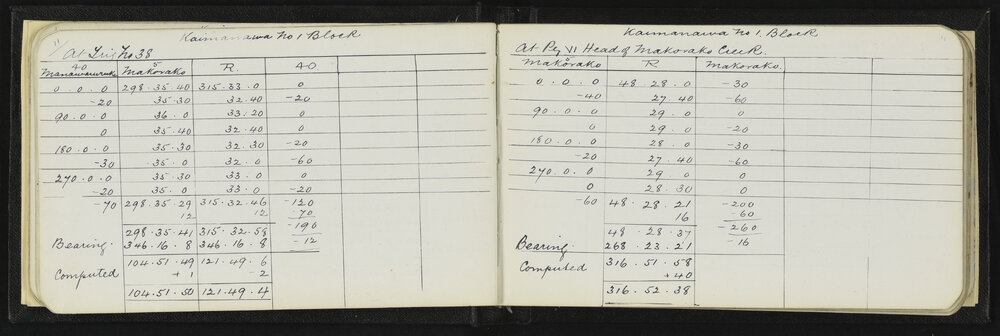 Kaimanawa No 1 Block
At Trig No 38
40 5
Manawaruruki Makorako R 40
0.0.0 298.35.40 315.33.0 0
-20 35.30 32.40 -20
90.0.0 36.0 33.20 0
0 35.40 32.40 0
180.0.0 35.30 32.30 -20
-30 35.0 32.0 -60
270.0.0 35.30 33.0 0
-20 35.0 33.0 -20
-70 298.35.29 315.32.46 -120
12 12 -70
298.35.41 315.32.58 -190
Bearing 346.16.8 346.16.8 -12
104.51.49 121.49.6
Computed +1 -2
104.51.50 121.49.4
Kaimanawa No 1. Block
At Peg VI Head of Makorako Creek.
Makorako R Makorako.
0.0.0 48.28.0 -30
-40 27.40 -60
90.0.0 29.0 0
0 29.0 -20
180.0.0 28.0 -30
-20 27.40 -60
270.0.0 29.0 0
0 28.30 0
-60 48.28.21 -200
16 -60
48.28.37 -260
Bearing. 268.23.21 -16
Computed 316.51.58
+40
316.52.38